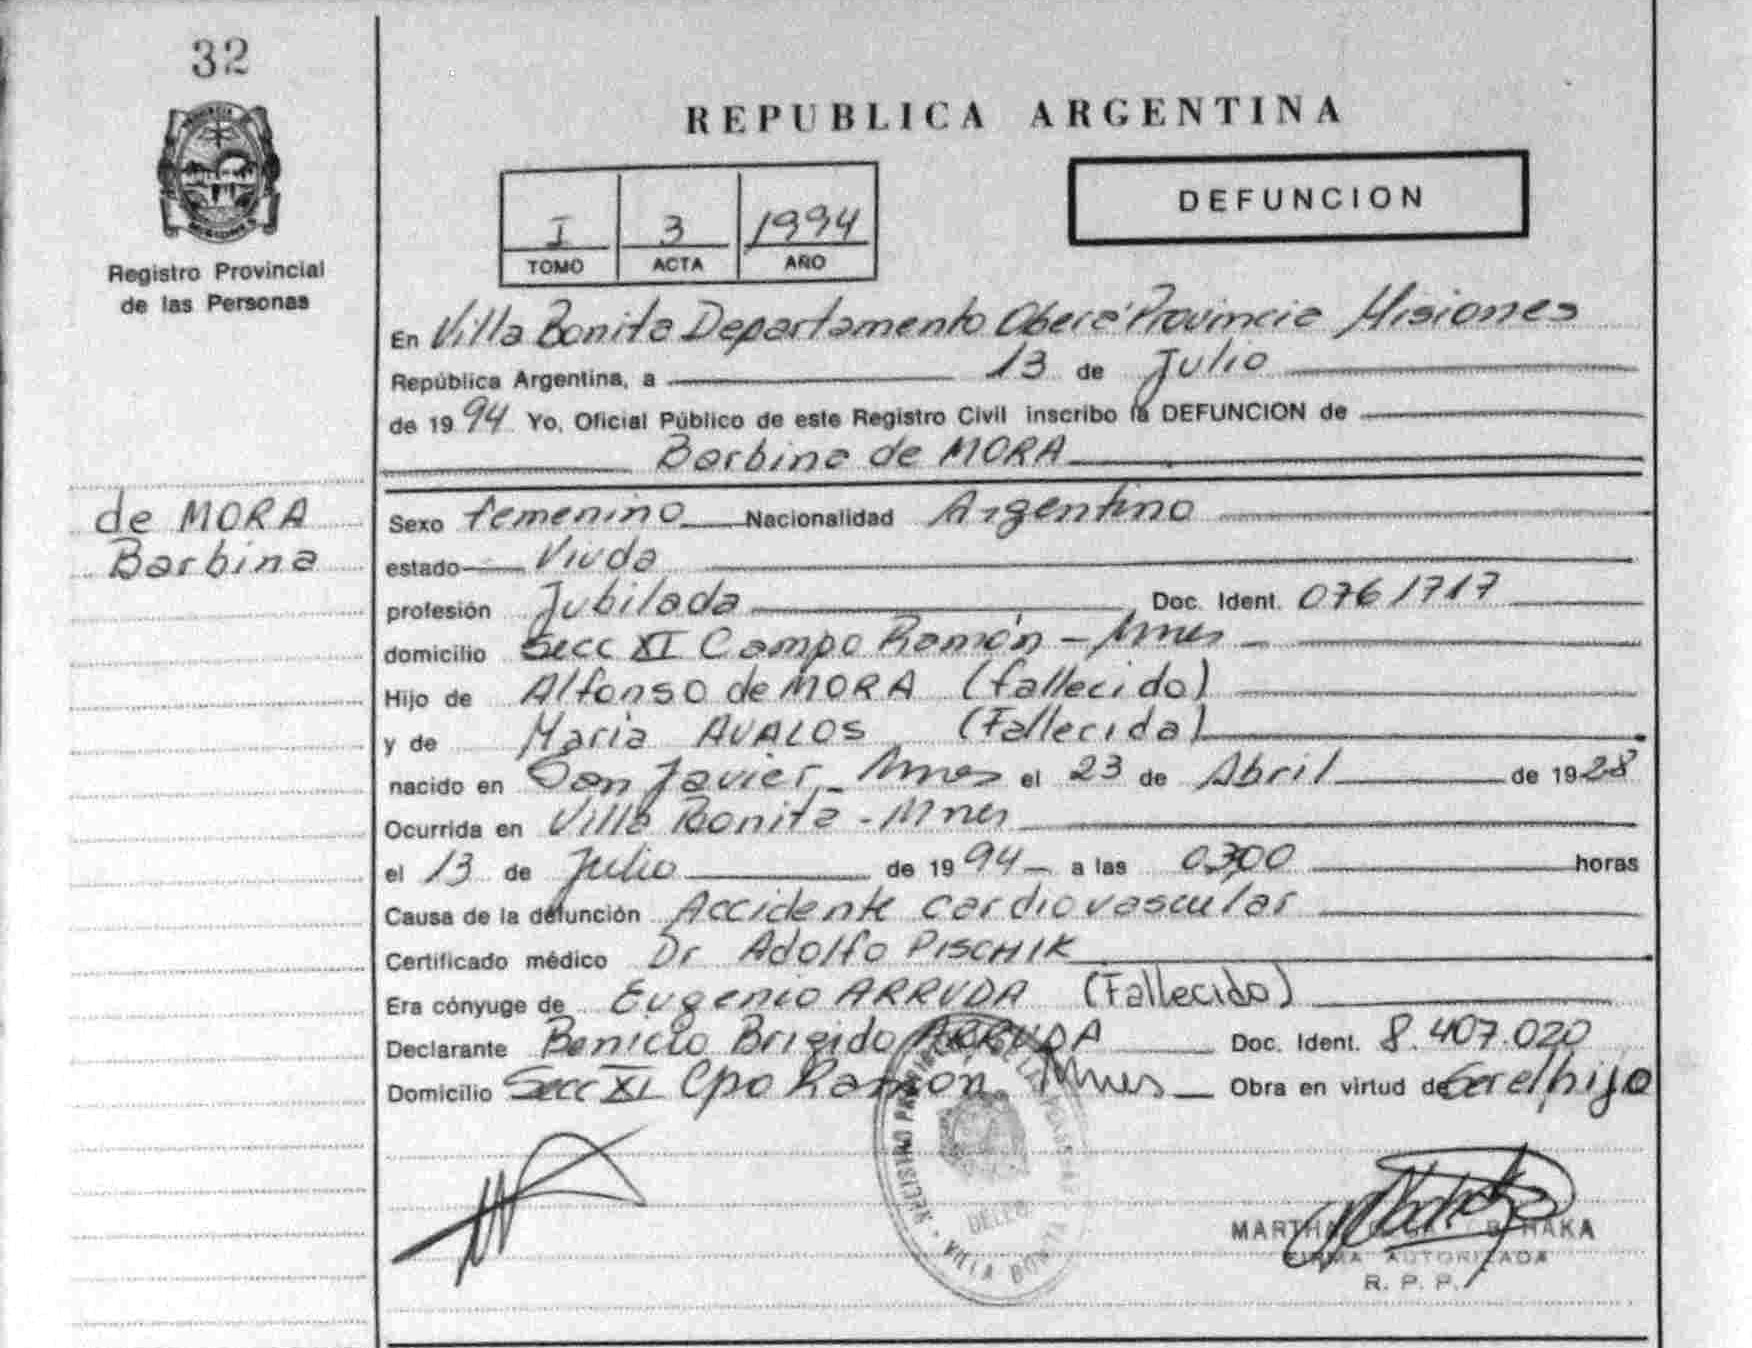 32
Registro Provincial
de las Personas
REPUBLICA ARGENTINA
I 3 1994
TOMO ACTA AÑO
DEFUNCION
En Villa Bonita Departamento Oberá Provincia Misiones
República Argentina, a 13 de Julio
de 1994 Yo, Oficial Público de este Registro Civil inscribo la DEFUNCION de
Barbina de MORA
de MORA
Barbina
Sexo femenino Nacionalidad Argentino
estado Viuda
profesión Jubilada Doc. Ident. 0761717
domicilio Secc XI Campo Ramón - Mnes
Hijo de Alfonso de MORA (fallecido)
y de Maria AVALOS (Fallecida)
nacido en San Javier - Mnes el 23 de Abril de 1928
Ocurrida en Villa Bonita - Mnes
el 13 de Julio de 1994 a las 0300 horas
Causa de la defunción Accidente cardiovascular
Certificado médico Dr Adolfo PISCHIK
Era cónyuge de Eugenio ARRUDA (Fallecido)
Declarante Benicio Brigido ARRUDA Doc. Ident. 8.407.020
Domicilio Secc XI Cpo Ramón Mnes Obra en virtud de ser el hijo
REGISTRO VILLA BONITA
MARTHA BARAKA
FIRMA AUTORIZADA
R. P. P.